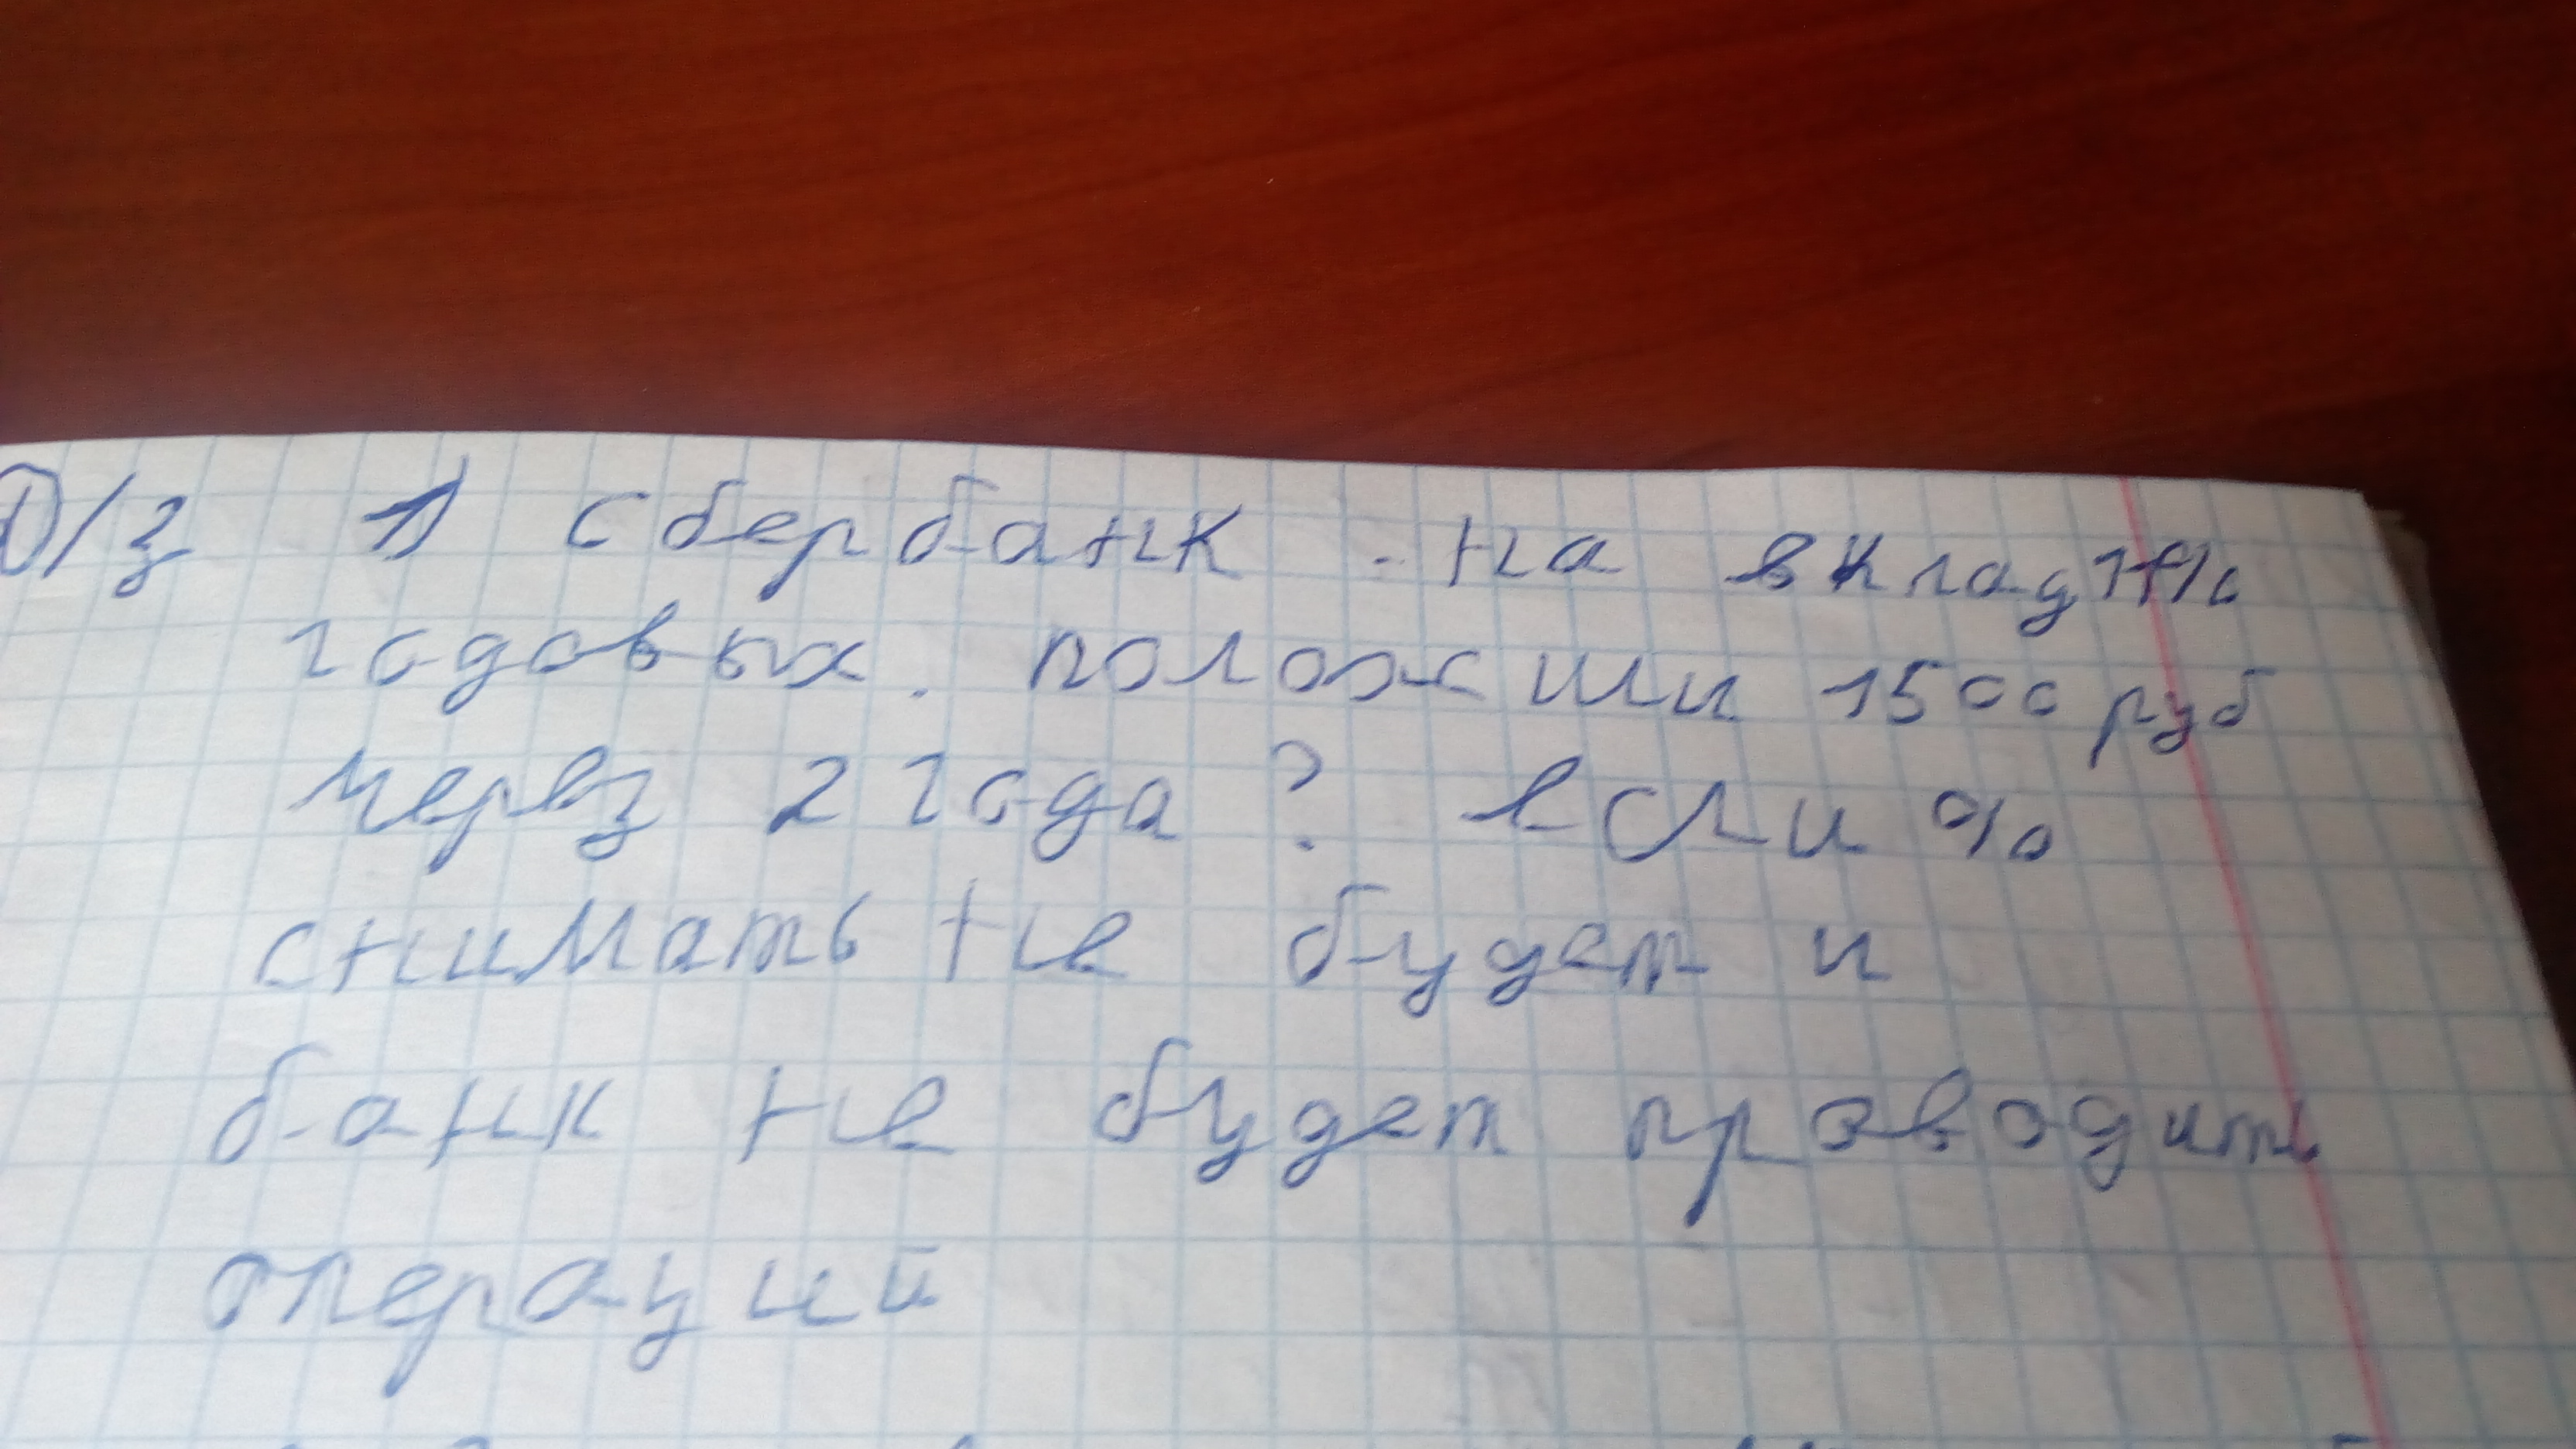 Д/з 1) сбербанк - на вклад 17%
годовых. положили 1500 руб
через 2 года ? если %
снимать не будет и
банк не будет проводить
операций